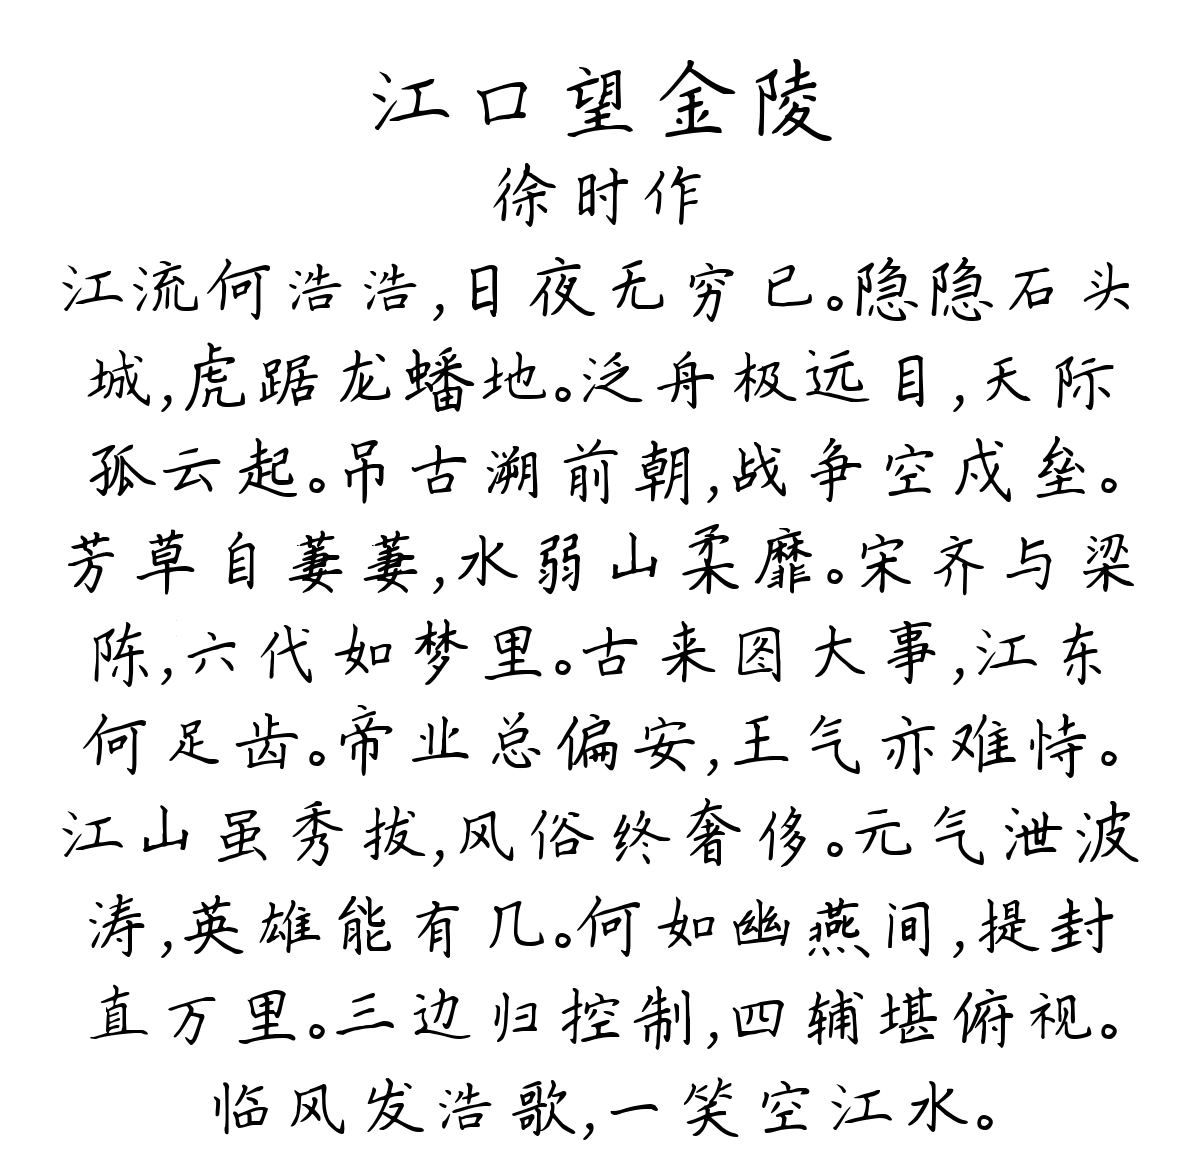 江口望金陵
徐时作
江流何浩浩,日夜无穷已。隐隐石头
城,虎踞龙蟠地。泛舟极远目,天际
孤云起。吊古溯前朝,战争空戍垒。
芳草自萋萋,水弱山柔靡。宋齐与梁
陈,六代如梦里。古来图大事,江东
何足齿。帝业总偏安,王气亦难恃。
江山虽秀拔,风俗终奢侈。元气泄波
涛,英雄能有几。何如幽燕间,提封
直万里。三边归控制,四辅堪俯视。
临风发浩歌,一笑空江水。